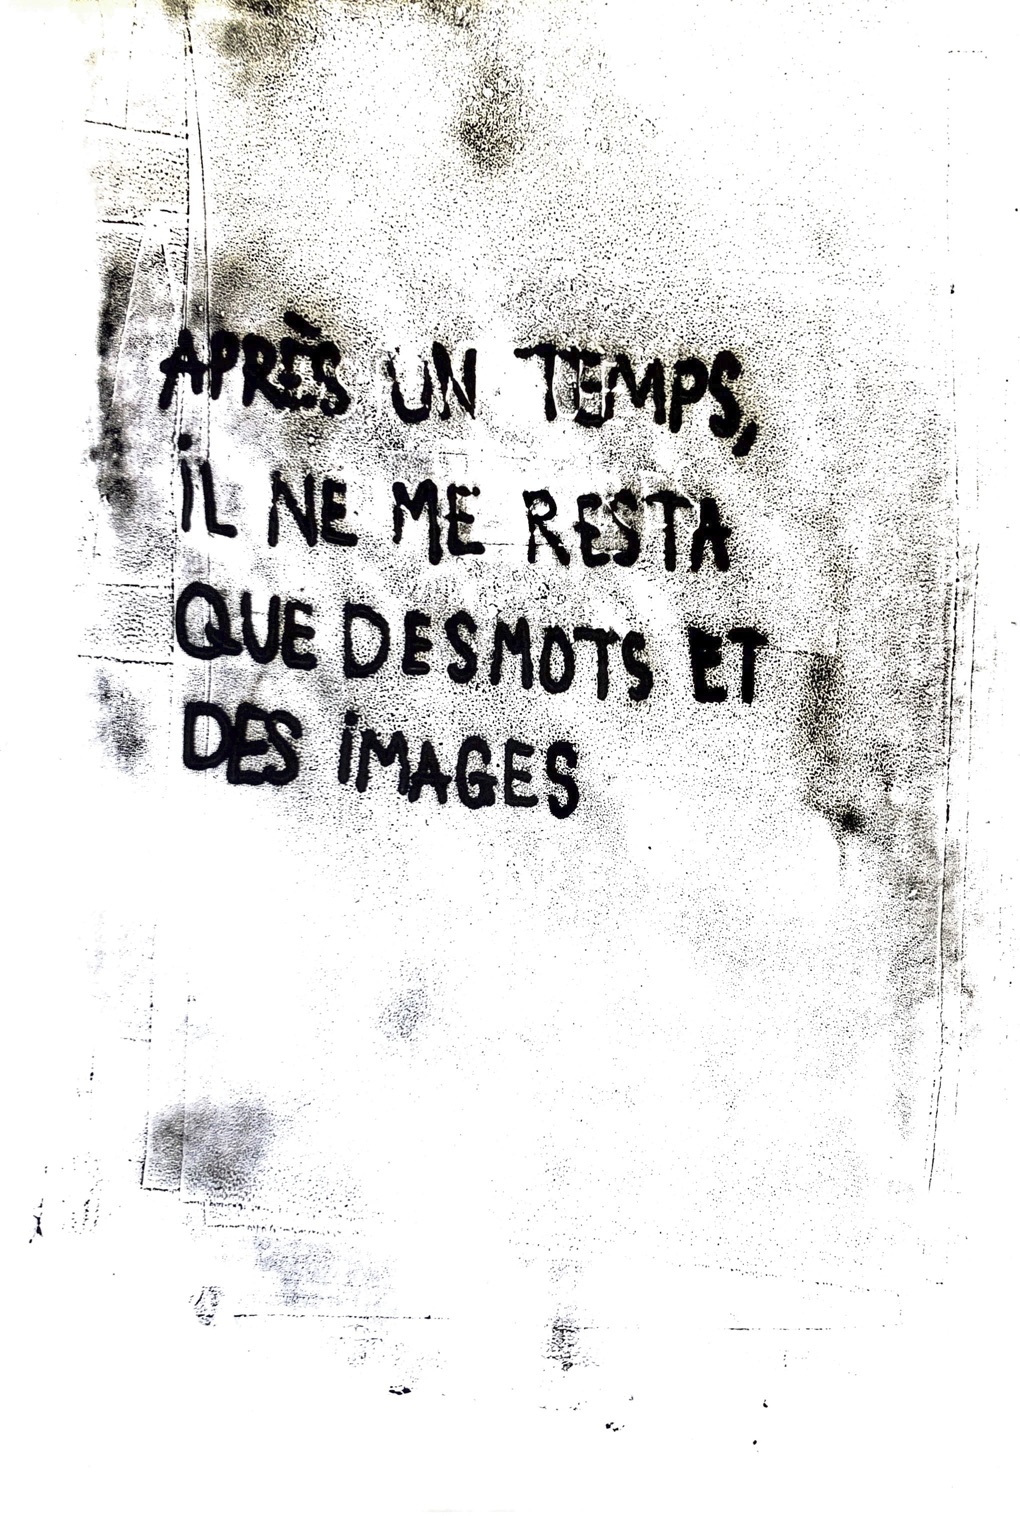 APRÈS UN TEMPS,
iL NE ME RESTA
QUE DES MOTS ET
DES iMAGES